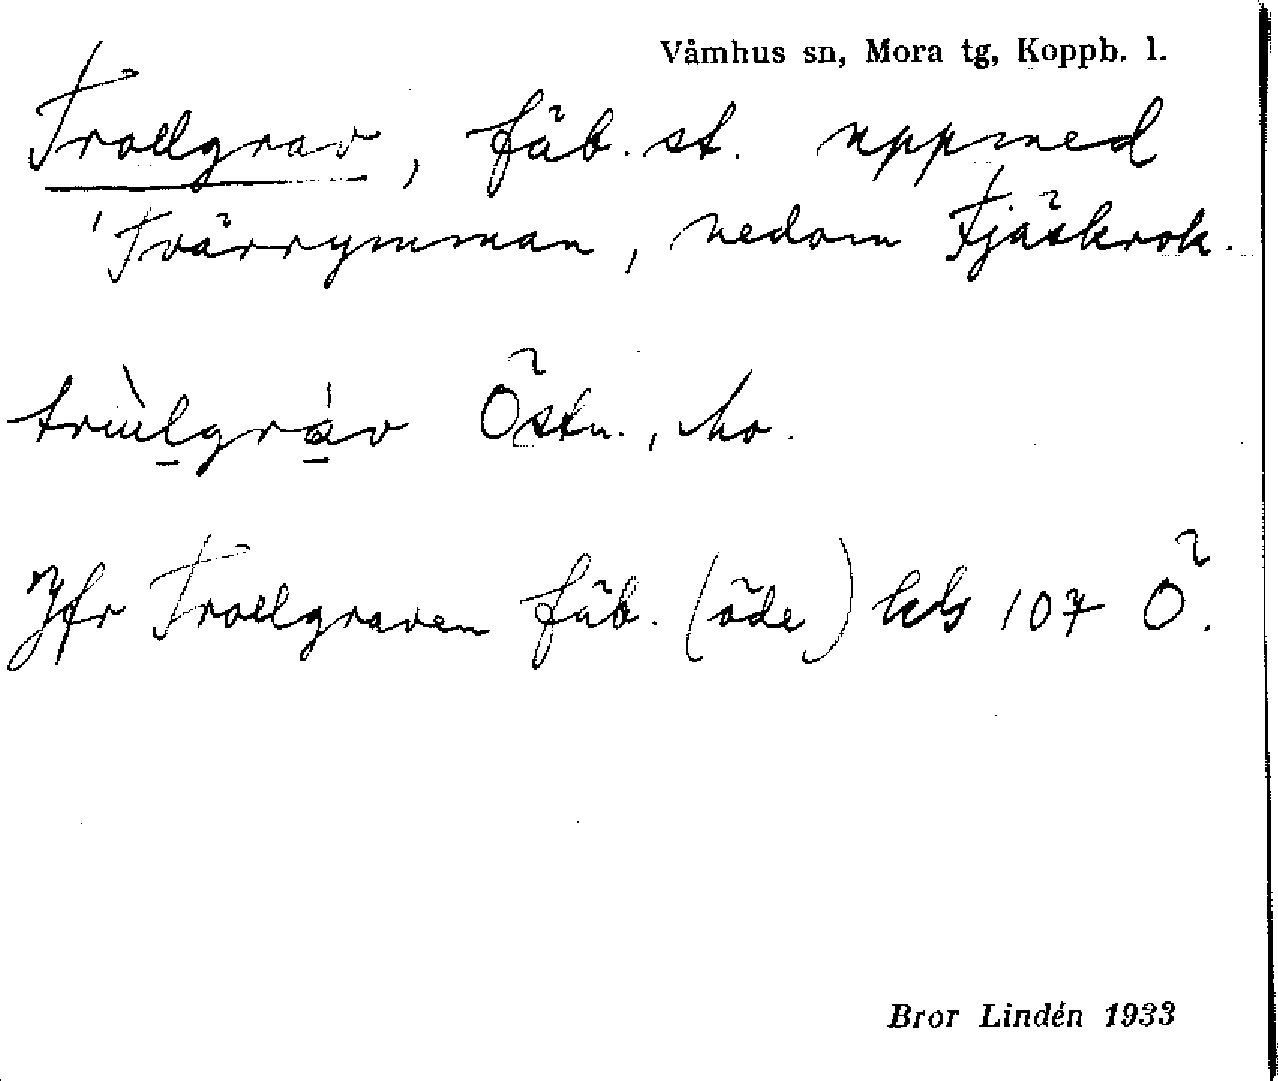 Våmhus sn, Mora tg, Koppb. l.
Trollgrav, fäb. st. uppmed
'Tvärrymman, nedom Fjäskrok.
trùlgráv Östn., Mo.
Jfr Trollgraven fäb. (öde) kbl 107 Ö.
Bror Lindén 1933